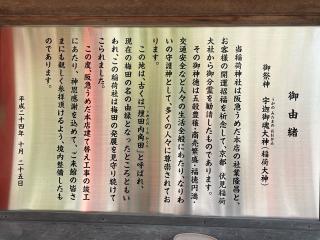 御由緒
御祭神 宇迦御魂大神(稲荷大神)
当稲荷神社は阪急うめだ本店の社業隆昌と、
お客様の開運招福を祈念して、京都 伏見稲荷
大社から御分霊を勧請したものであります。
その御神徳は五穀豊穣・商売繁盛・福徳円満・
交通安全など人々の生活全般にわたり、なりわ
いの守護神として、多くの人々に尊崇されてお
ります。
この地は、古くは「埋田内角田」と呼ばれ、
現在の梅田の名の由縁となったところともい
われ、この稲荷社は梅田の発展を見守り続けて
こられました。
この度、阪急うめだ本店建て替え工事の竣工
にあたり、神恩感謝を込めて、ご来館の皆さ
まにも親しく参拝頂けるよう、境内整備したも
のであります。
平成二十四年 十月 二十五日